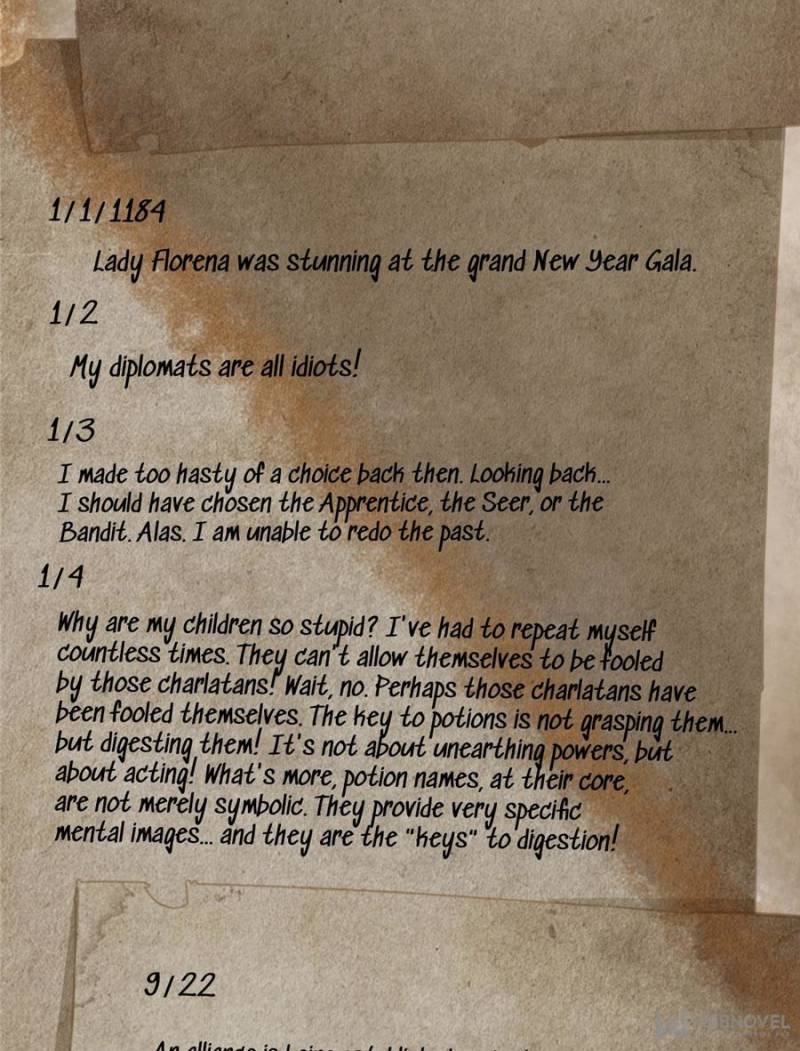 1/1/1184
Lady Florena was stunning at the grand New Year Gala.
1/2
My diplomats are all idiots!
1/3
I made too hasty of a choice back then. Looking back...
I should have chosen the Apprentice, the Seer, or the
Bandit. Alas. I am unable to redo the past.
1/4
Why are my children so stupid? I've had to repeat myself
countless times. They can't allow themselves to be fooled
by those charlatans! Wait, no. Perhaps those charlatans have
been fooled themselves. The key to potions is not grasping them...
but digesting them! It's not about unearthing powers, but
about acting! What's more, potion names, at their core,
are not merely symbolic. They provide very specific
mental images... and they are the "keys" to digestion!
9/22
An alliance is